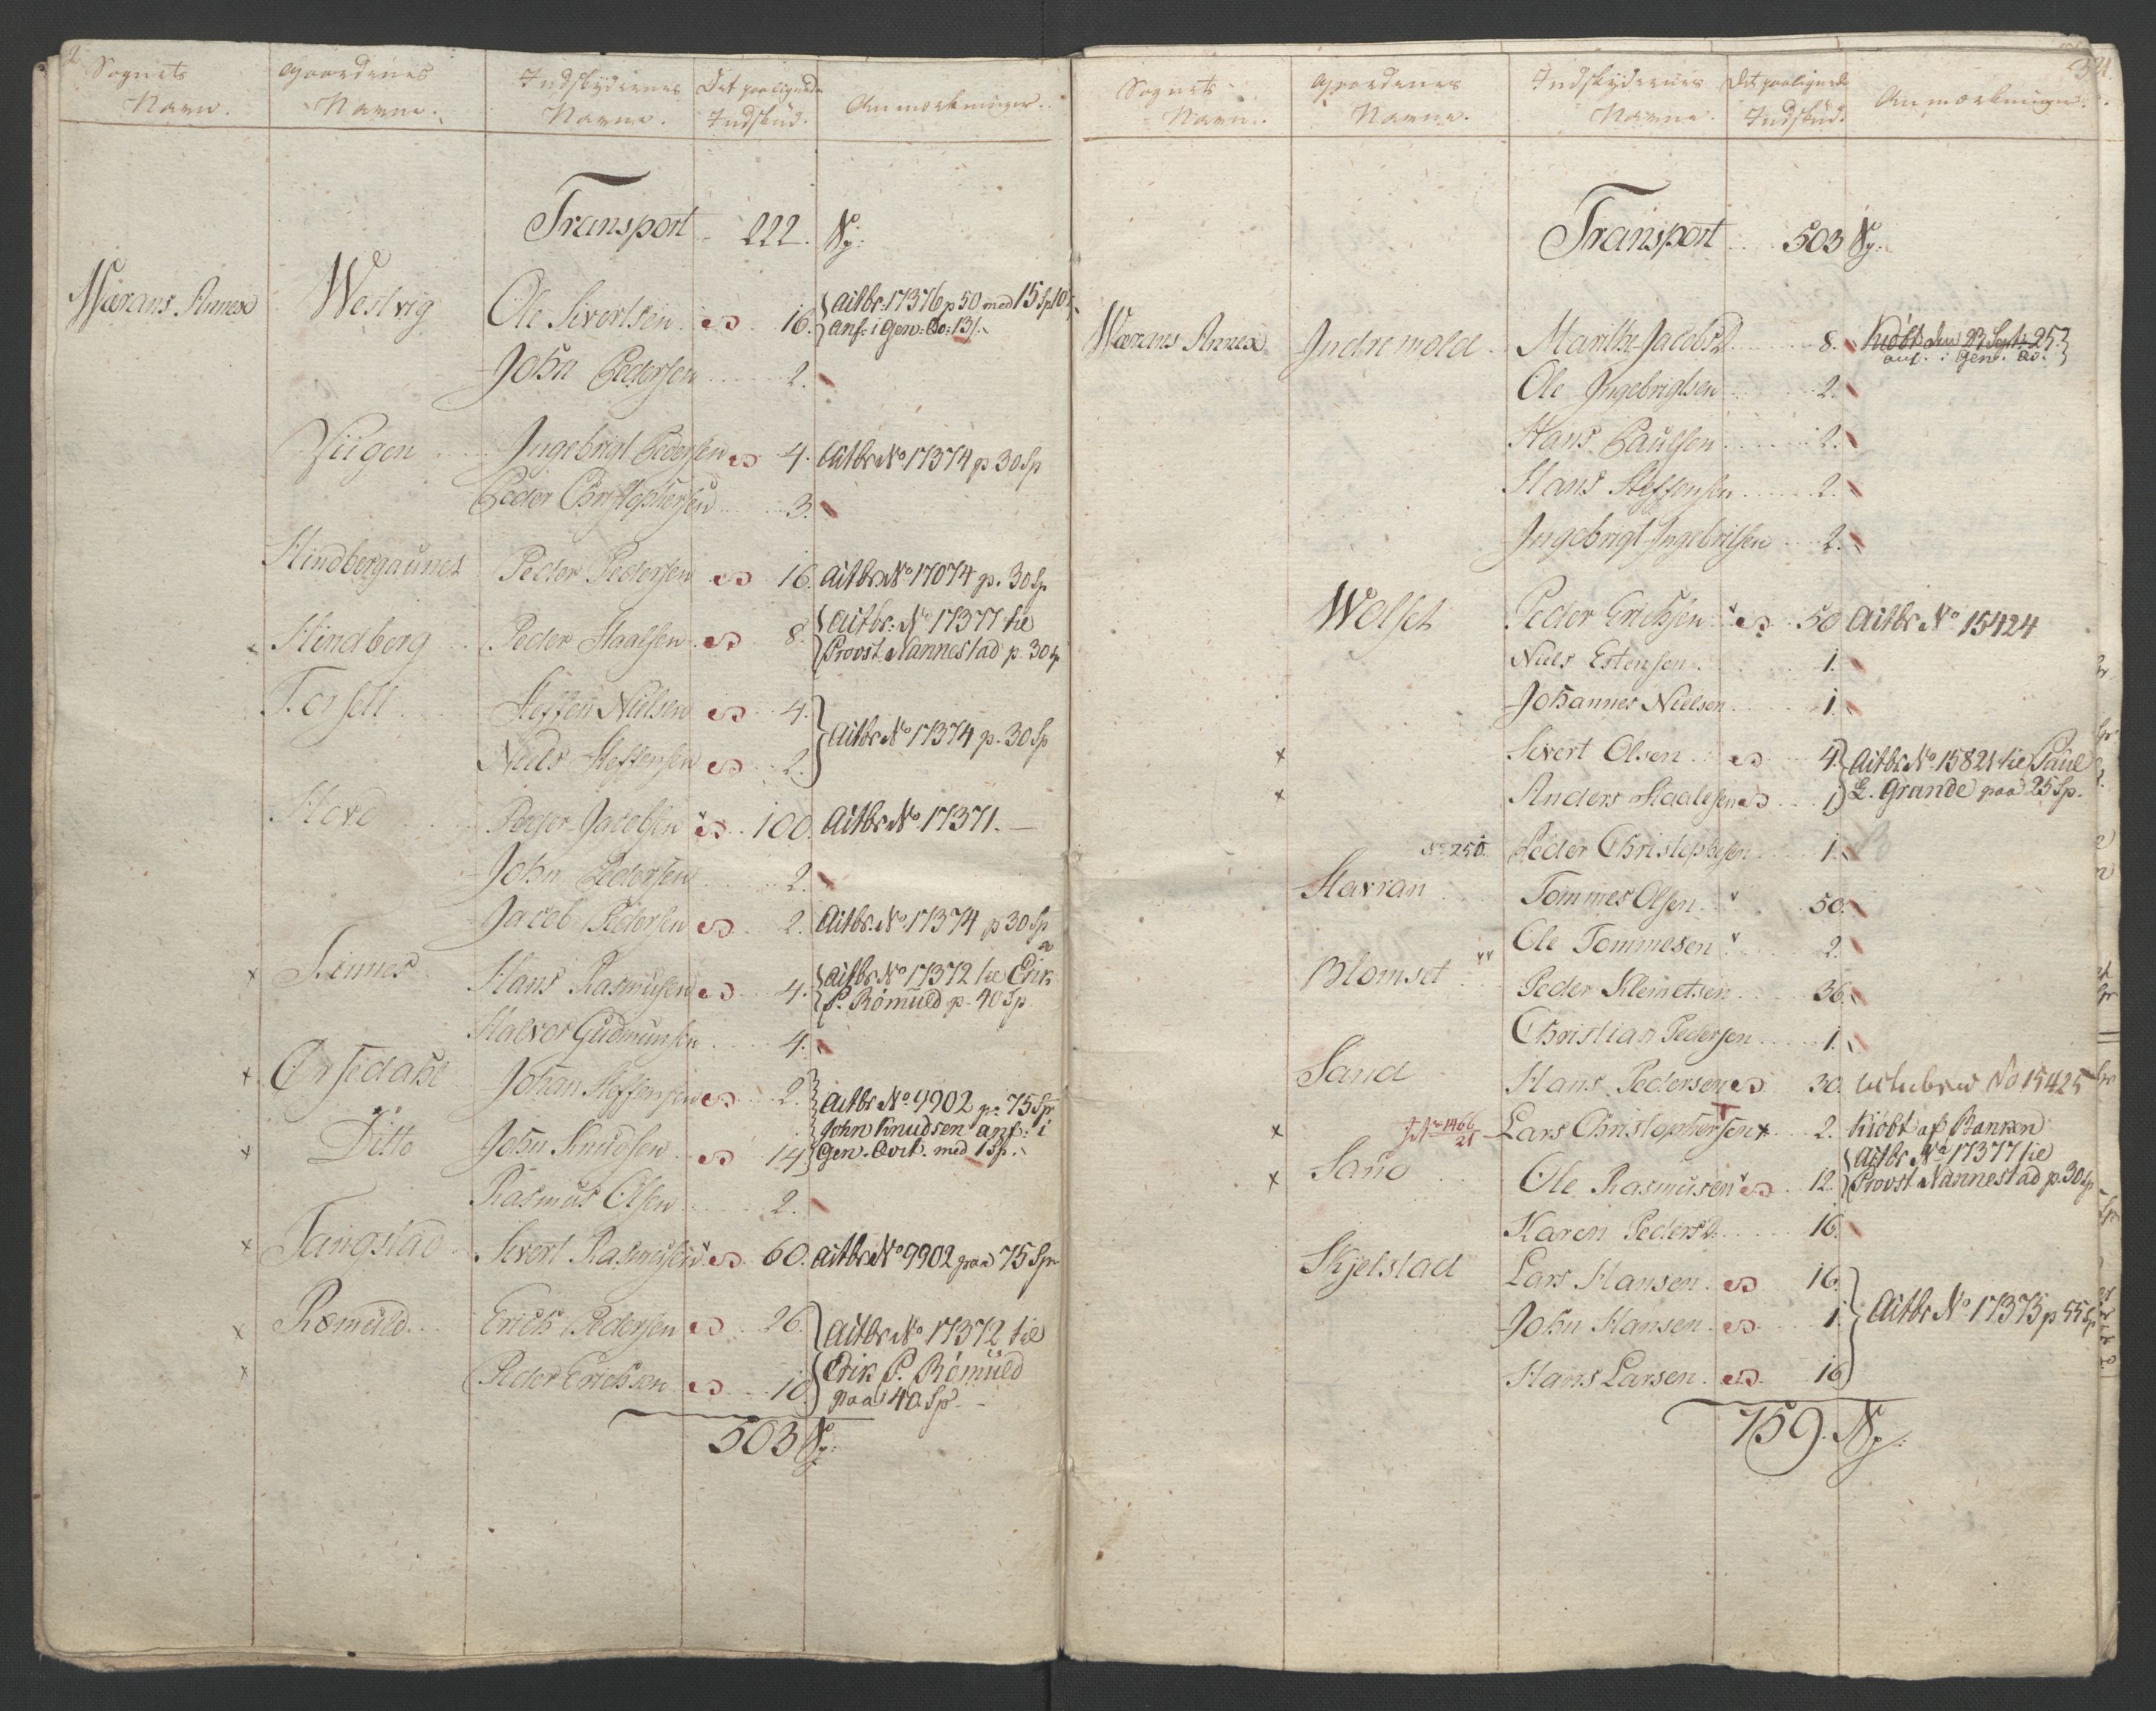 2
Sognets Navn.
Gaardenes Navne.
Indskydernes Navne.
Det paalignede Indskud.
Anmærkninger.
Transport 222. Sp:
Wærans Annex Westvig Ole Sivertsen 16. Aitbr. 17376 p 50 med 15 Sp 10
anf: i Gen: Qv: 13 s.
John Pedersen 2.
Viigen Ingebrigt Pedersen 4. Aitbr No 17374 p 30 Sp
Peder Christophersen 3.
Hindbergaunet Peder Pedersen 16. Aitbr No 17074 p. 30 Sp.
Hindberg Peder Staalsen 8. Aitbr: No 17377 til
Provst Nannestad p. 30 sp
Forsell Steffen Nielsen 4.
Aitbr No 17374 p. 30 Sp
Niels Steffensen 2.
Hovd Peder Jacobsen 100. Aitbr No 17371.
John Pedersen 2.
Jacob Pedersen 2. Aitbr. No 17374 p 30 Sp
x Sinnes Hans Rasmusen 4. Aitbr No 17372 til Erik
P. Römuld p. 40 Sp.
Halvor Gudmunsen 4.
x Örsedahl Johan Steffensen 2. Aitbr No 9902 p. 75 Sp
John Knudsen anf: i
x Ditto John Knudsen 14. Gen. Qvit. med 1 Sp.
Rasmus Olsen 2.
x Tangstad Sivert Rasmusen 60. Aitbr No 9902 paa 75 Sp
x Römuld Erich Pedersen 26. Aitbr No 17372 til
Erik P. Römüld
x Peder Erichsen 10. paa 40 Sp.
503 Sp:
321.
Sognets Navn.
Gaardenes Navne.
Indskydernes Navne.
Det paalignede Indskud.
Anmærkninger.
Transport 503 Sp:
Wærans Annex Indremold Marithe Jacobsd. 8. Kiöbt den 23 Septr 25
anf. i Gen. Qv.
Ole Ingebrigtsen 2.
Hans Paulsen 2.
Hans Steffensen 2.
Ingebrigt Ingebritsen 2.
Wolset Peder Erichsen 50 Aitbr No 15424
Niels Estensen 1.
Johannes Nielsen 1.
x Sivert Olsen 4. Aitbr. No 15821 til Paul
x Anders Staalesen 1. L. Grande paa 25 Sp.
No 250. Peder Christophersen 1.
Stavran Tommes Olsen 50.
Ole Tommesen 2.
Blomset Peder Klemetsen 36.
Christian Pedersen 1.
Sand Hans Pedersen 30. No 15425
x 1466
21 Lars Christophersen 2. Kiöbt af Banken
Aitbr No 17377 til
x Sand Ole Rasmusen 12. Provst Nannestad p. 30 Sp
Karen Pedersd. 16.
Skjelstad Lars Hansen 16.
John Hansen 1. Aitbr No 17375 p 55 Sp
Hans Larsen 16
759. Sp: